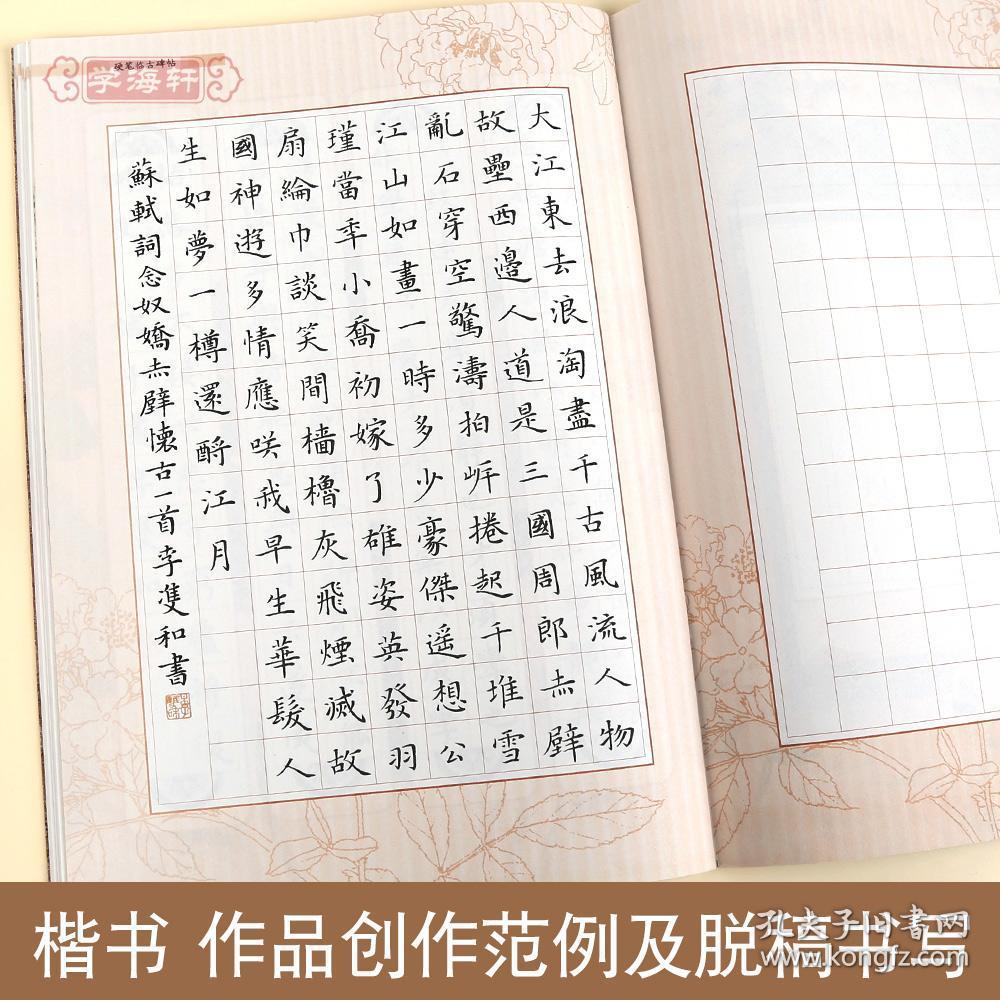 硬笔临古碑帖
学海轩
大江東去浪淘盡千古風流人物
故壘西邊人道是三國周郎赤壁
亂石穿空驚濤拍岸捲起千堆雪
江山如畫一時多少豪傑遥想公
瑾當秊小喬初嫁了雄姿英發羽
扇綸巾談笑間檣櫓灰飛煙滅故
國神遊多情應咲我早生華髮人
生如夢一樽還酹江月
蘇軾詞念奴嬌赤壁懷古一首李雙和書
楷书 作品创作范例及脱稿书写
孔夫子旧书网
kongfz.com